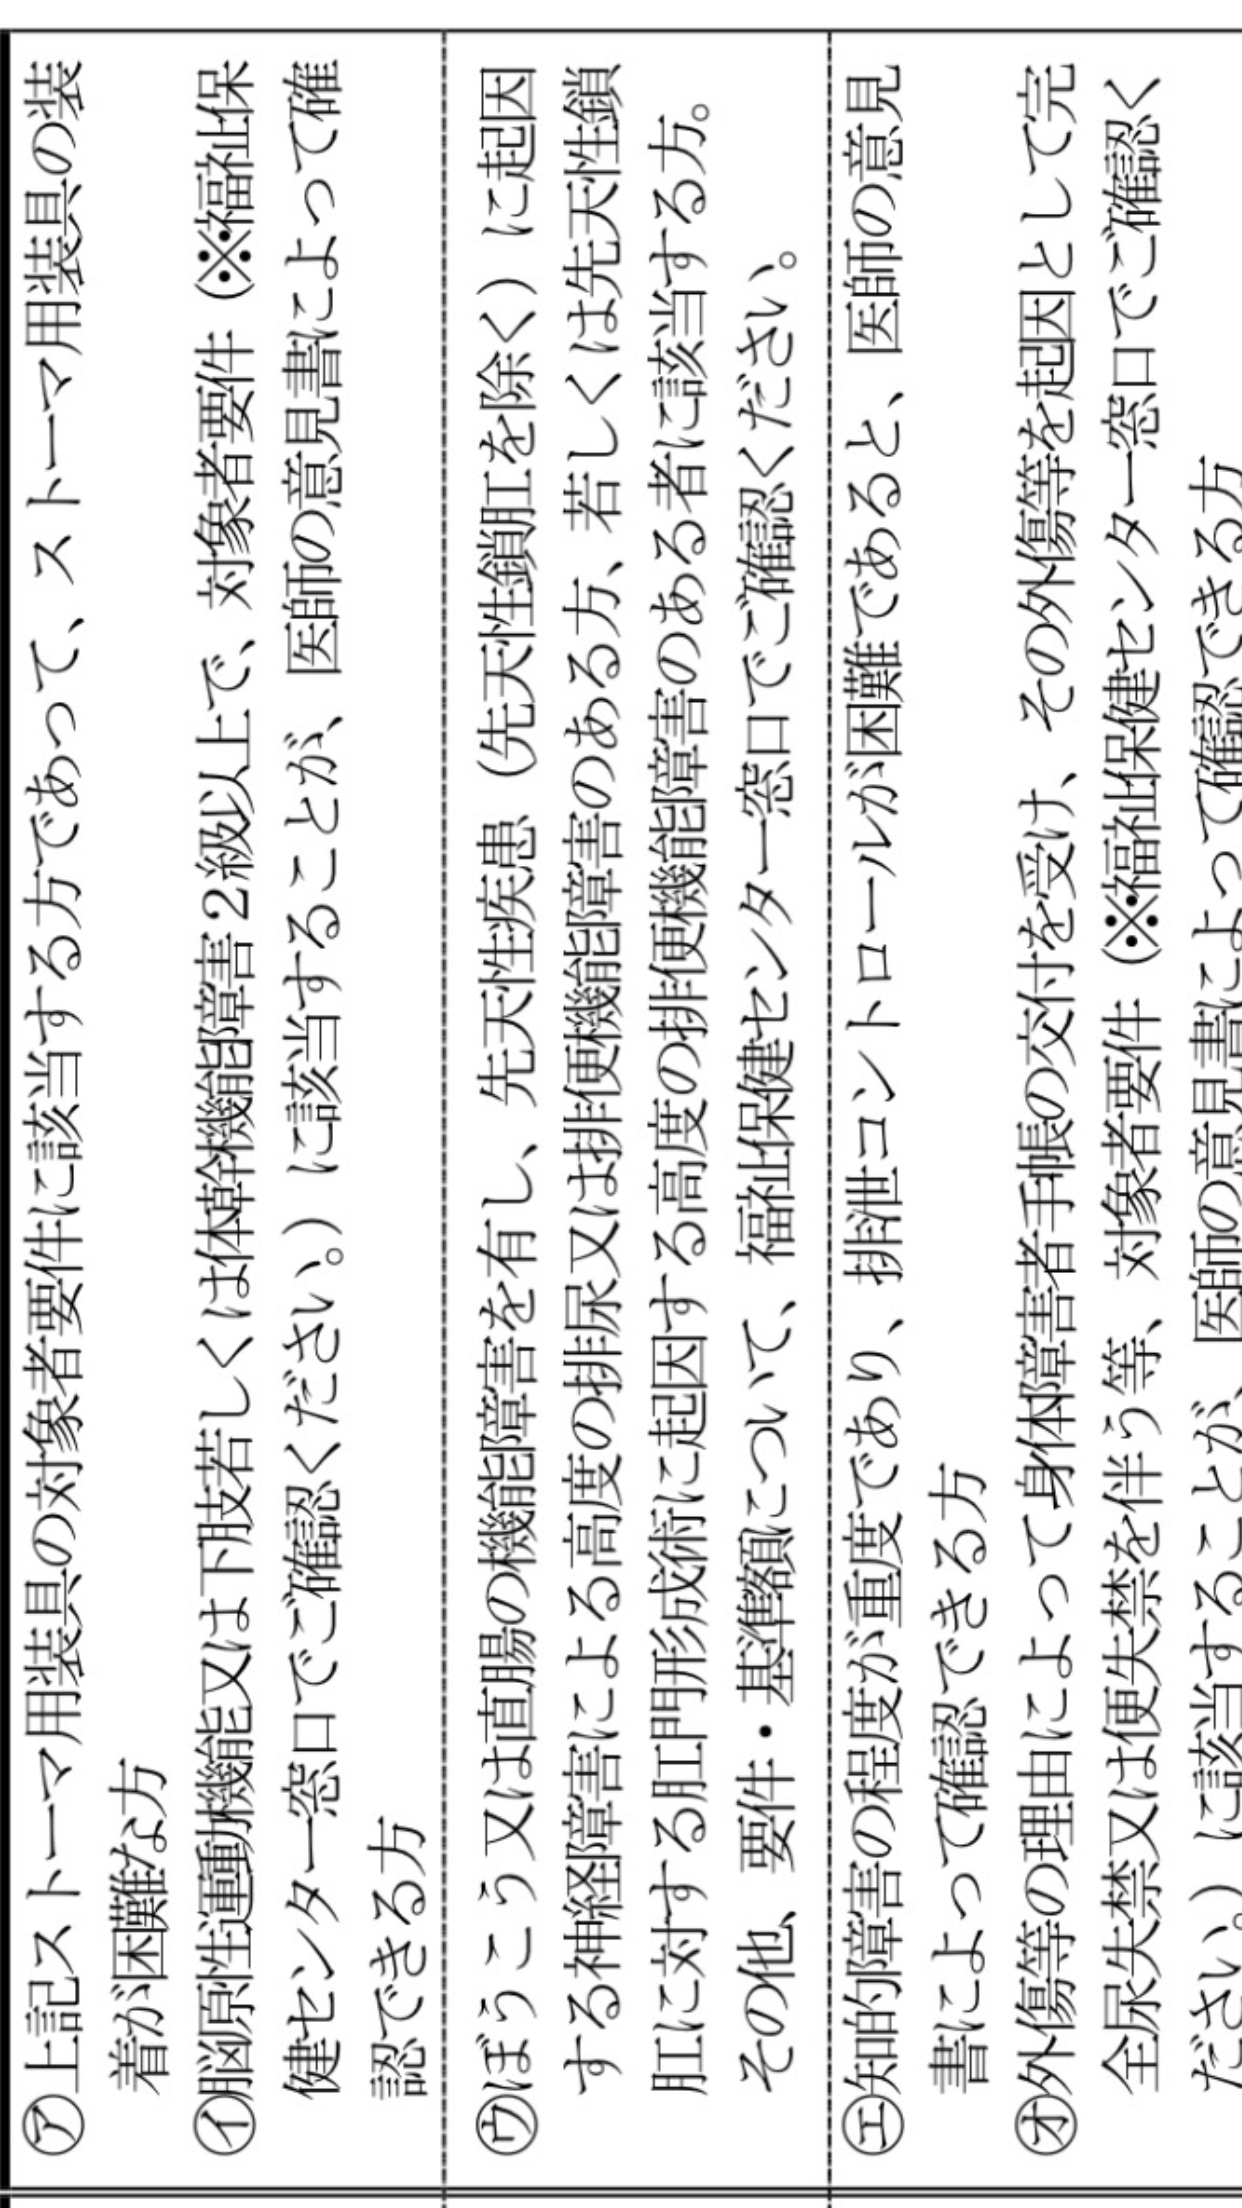 ㋐上記ストーマ用装具の対象者要件に該当する方であって、ストーマ用装具の装
着が困難な方
㋑脳原性運動機能又は下肢若しくは体幹機能障害２級以上で、対象者要件（※福祉保
健センター窓口でご確認ください。）に該当することが、医師の意見書によって確
認できる方
㋒ぼうこう又は直腸の機能障害を有し、先天性疾患（先天性鎖肛を除く）に起因
する神経障害による高度の排尿又は排便機能障害のある方、若しくは先天性鎖
肛に対する肛門形成術に起因する高度の排便機能障害のある者に該当する方。
その他、要件・基準額について、福祉保健センター窓口でご確認ください。
㋓知的障害の程度が重度であり、排泄コントロールが困難であると、医師の意見
書によって確認できる方
㋔外傷等の理由によって身体障害者手帳の交付を受け、その外傷等を起因として完
全尿失禁又は便失禁を伴う等、対象者要件（※福祉保健センター窓口でご確認く
ださい。）に該当することが、医師の意見書によって確認できる方